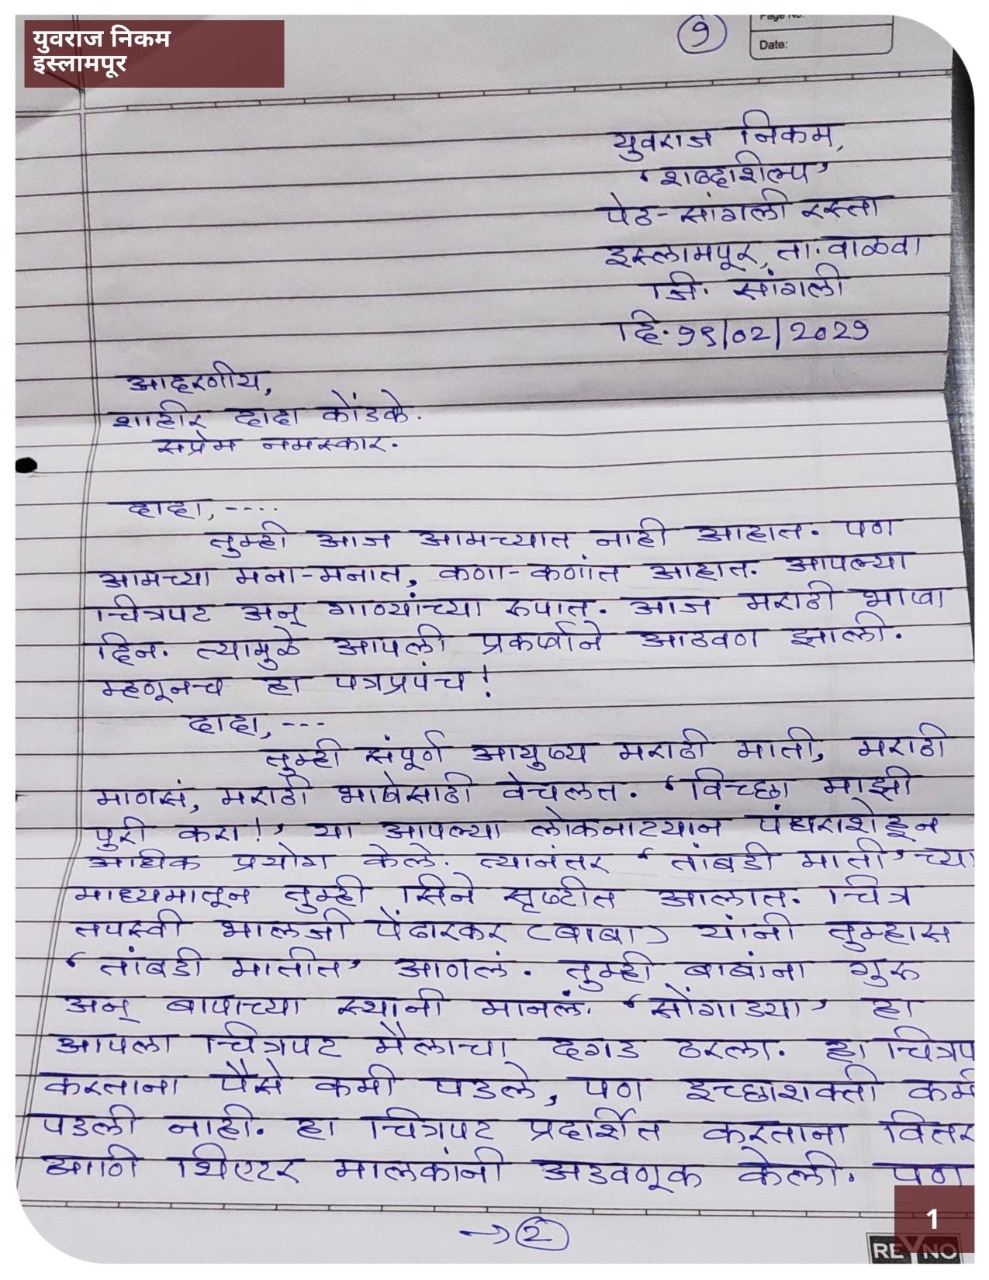 युवराज निकम
इस्लामपूर
१
Page No.
Date:
युवराज निकम,
'शब्दशिल्प'
पेठ-सांगली रस्ता
इस्लामपूर, ता. वाळवा
जि. सांगली
दि. १९/०२/२०२१
आदरणीय,
शाहीर दादा कोंडके.
सप्रेम नमस्कार.
दादा, ----
तुम्ही आज आमच्यात नाही आहात. पण
आमच्या मना-मनात, कणा-कणांत आहात. आपल्या
चित्रपट अन् गाण्यांच्या रुपात. आज मराठी भाषा
दिन. त्यामुळे आपली प्रकर्षाने आठवण झाली.
म्हणूनच हा पत्रप्रपंच!
दादा, ---
तुम्ही संपूर्ण आयुष्य मराठी माती, मराठी
माणसं, मराठी भाषेसाठी वेचलत. 'विच्छा माझी
पुरी करा!' या आपल्या लोकनाट्यान पंधराशेहून
अधिक प्रयोग केले. त्यानंतर 'तांबडी माती' च्या
माध्यमातून तुम्ही सिने सृष्टीत आलात. चित्र
तपस्वी भालजी पेंढारकर (बाबा) यांनी तुम्हास
'तांबडी मातीत' आणलं. तुम्ही बाबांना गुरू
अन् बापाच्या स्थानी मानलं. 'सोंगाड्या' हा
आपला चित्रपट मैलाचा दगड ठरला. हा चित्रप
करताना पैसे कमी पडले, पण इच्छाशक्ती कमी
पडली नाही. हा चित्रपट प्रदर्शित करताना वितर
आणि थिएटर मालकांनी अडवणूक केली. पण
→ २
1
REYNO